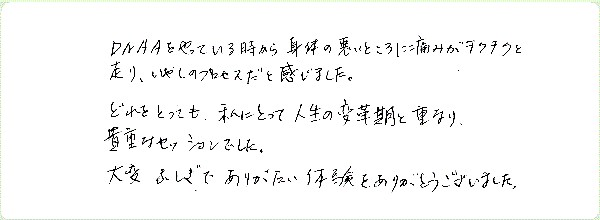 DNAAをやっている時から身体の悪いところに痛みがチクチクと
走り、いやしのプロセスだと感じました。
どれをとっても、私にとって人生の変革期と重なり、
貴重なセッションでした。
大変ふしぎでありがたい体験をありがとうございました。